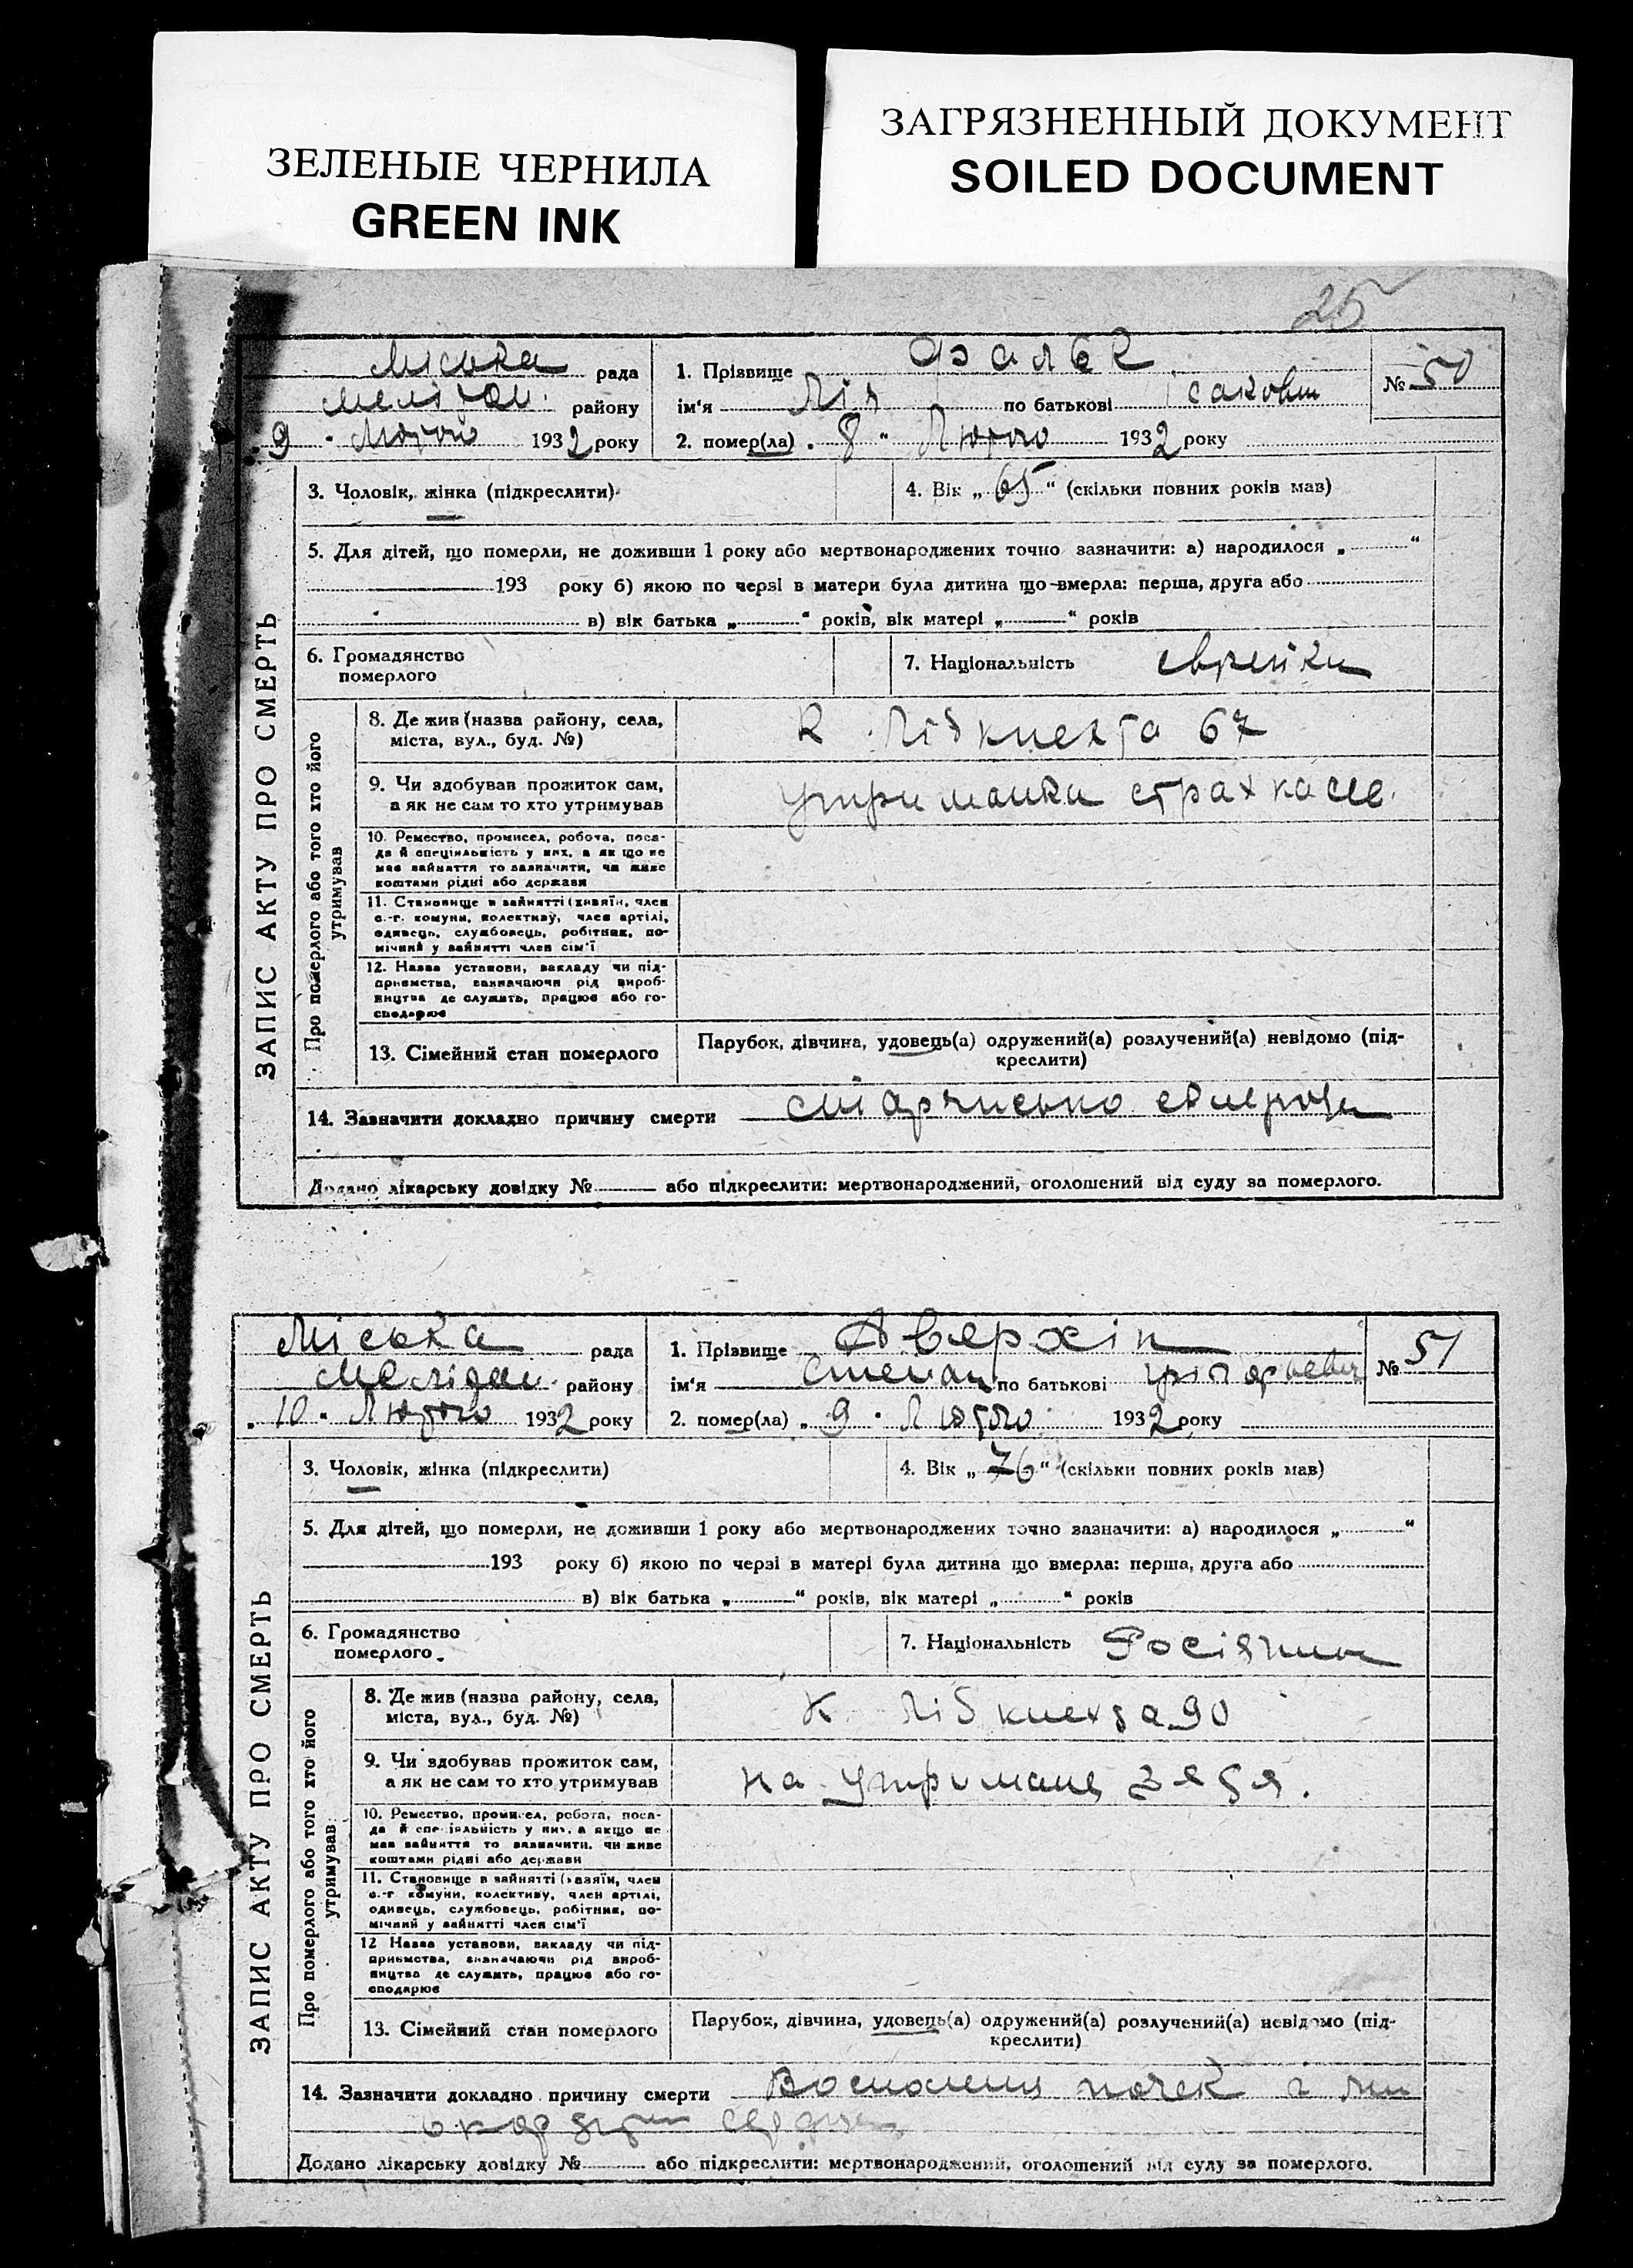 ЗЕЛЕНЫЕ ЧЕРНИЛА
GREEN INK
ЗАГРЯЗНЕННЫЙ ДОКУМЕНТ
SOILED DOCUMENT
25
ЗАПИС АКТУ ПРО СМЕРТЬ
Міська рада
району
9 Лютого 1932 року
1. Прізвище Фальк
ім'я Лія по батькові Ісаковн
№ 50
2. помер(ла) „8" Лютого 1932 року
3. Чоловік, жінка (підкреслити)
4. Вік „65" (скільки повних років мав)
5. Для дітей, що померли, не доживши 1 року або мертвонароджених точно зазначити: а) народилося „ "
193 року б) якою по черзі в матери була дитина що вмерла: перша, друга або
в) вік батька „ " років, вік матері „ " років
6. Громадянство
померлого
7. Національність єврейка
Про померлого або того хто його
утримував
8. Де жив (назва району, села,
міста, вул., буд. №)
К. Лібкнехта 67
9. Чи здобував прожиток сам,
а як не сам то хто утримував
утриманка страхкаси.
10. Ремество, промисел, робота, поса-
да й спеціяльність у них, а як що не
мав зайняття то зазначити, чи живе
коштами рідні або держави
11. Становище в зайнятті (хазяїн, член
с.-г. комуни, колективу, член артілі,
одивець, службовець, робітник, по-
мічний у зайнятті член сім'ї
12. Назва установи, закладу чи під-
приємства, зазначаючи рід вироб-
ництва де служить, працює або го-
сподарює
13. Сімейний стан померлого
Парубок, дівчина, удовець(а) одружений(а) розлучений(а) невідомо (під-
креслити)
14. Зазначити докладно причину смерти
Додано лікарську довідку № або підкреслити: мертвонароджений, оголошений від суду за померлого.
ЗАПИС АКТУ ПРО СМЕРТЬ
Міська рада
району
„10" Лютого 1932 року
1. Прізвище Аверхін
ім'я Степан по батькові
№ 51
2. помер(ла) „9" Лютого 1932 року
3. Чоловік, жінка (підкреслити)
4. Вік „76" (скільки повних років мав)
5. Для дітей, що померли, не доживши 1 року або мертвонароджених точно зазначити: а) народилося „ "
193 року б) якою по черзі в матері була дитина що вмерла: перша, друга або
в) вік батька „ " років, вік матері „ " років
6. Громадянство
померлого
7. Національність Росіянин
Про померлого або того хто його
утримував
8. Де жив (назва району, села,
міста, вул., буд. №)
К. Лібкнехта 90
9. Чи здобував прожиток сам,
а як не сам то хто утримував
на зятя.
10. Ремество, промисел, робота, поса-
да й спеціяльність у них, а якщо не
мав зайняття то зазначити, чи живе
коштами рідні або держави
11. Становище в зайнятті (хазяїн, член
с.-г комуни, колективу, член артілі,
одивець, службовець, робітник, по-
мічний у зайнятті член сім'ї
12 Назва установи, закладу чи під-
приємства, зазначаючи рід вироб-
ництва де служить, працює або го-
сподарює
13. Сімейний стан померлого
Парубок, дівчина, удовець(а) одружений(а) розлучений(а) невідомо (під-
креслити)
14. Зазначити докладно причину смерти почек і
Додано лікарську довідку № або підкреслити: мертвонароджений, оголошений від суду за померлого.